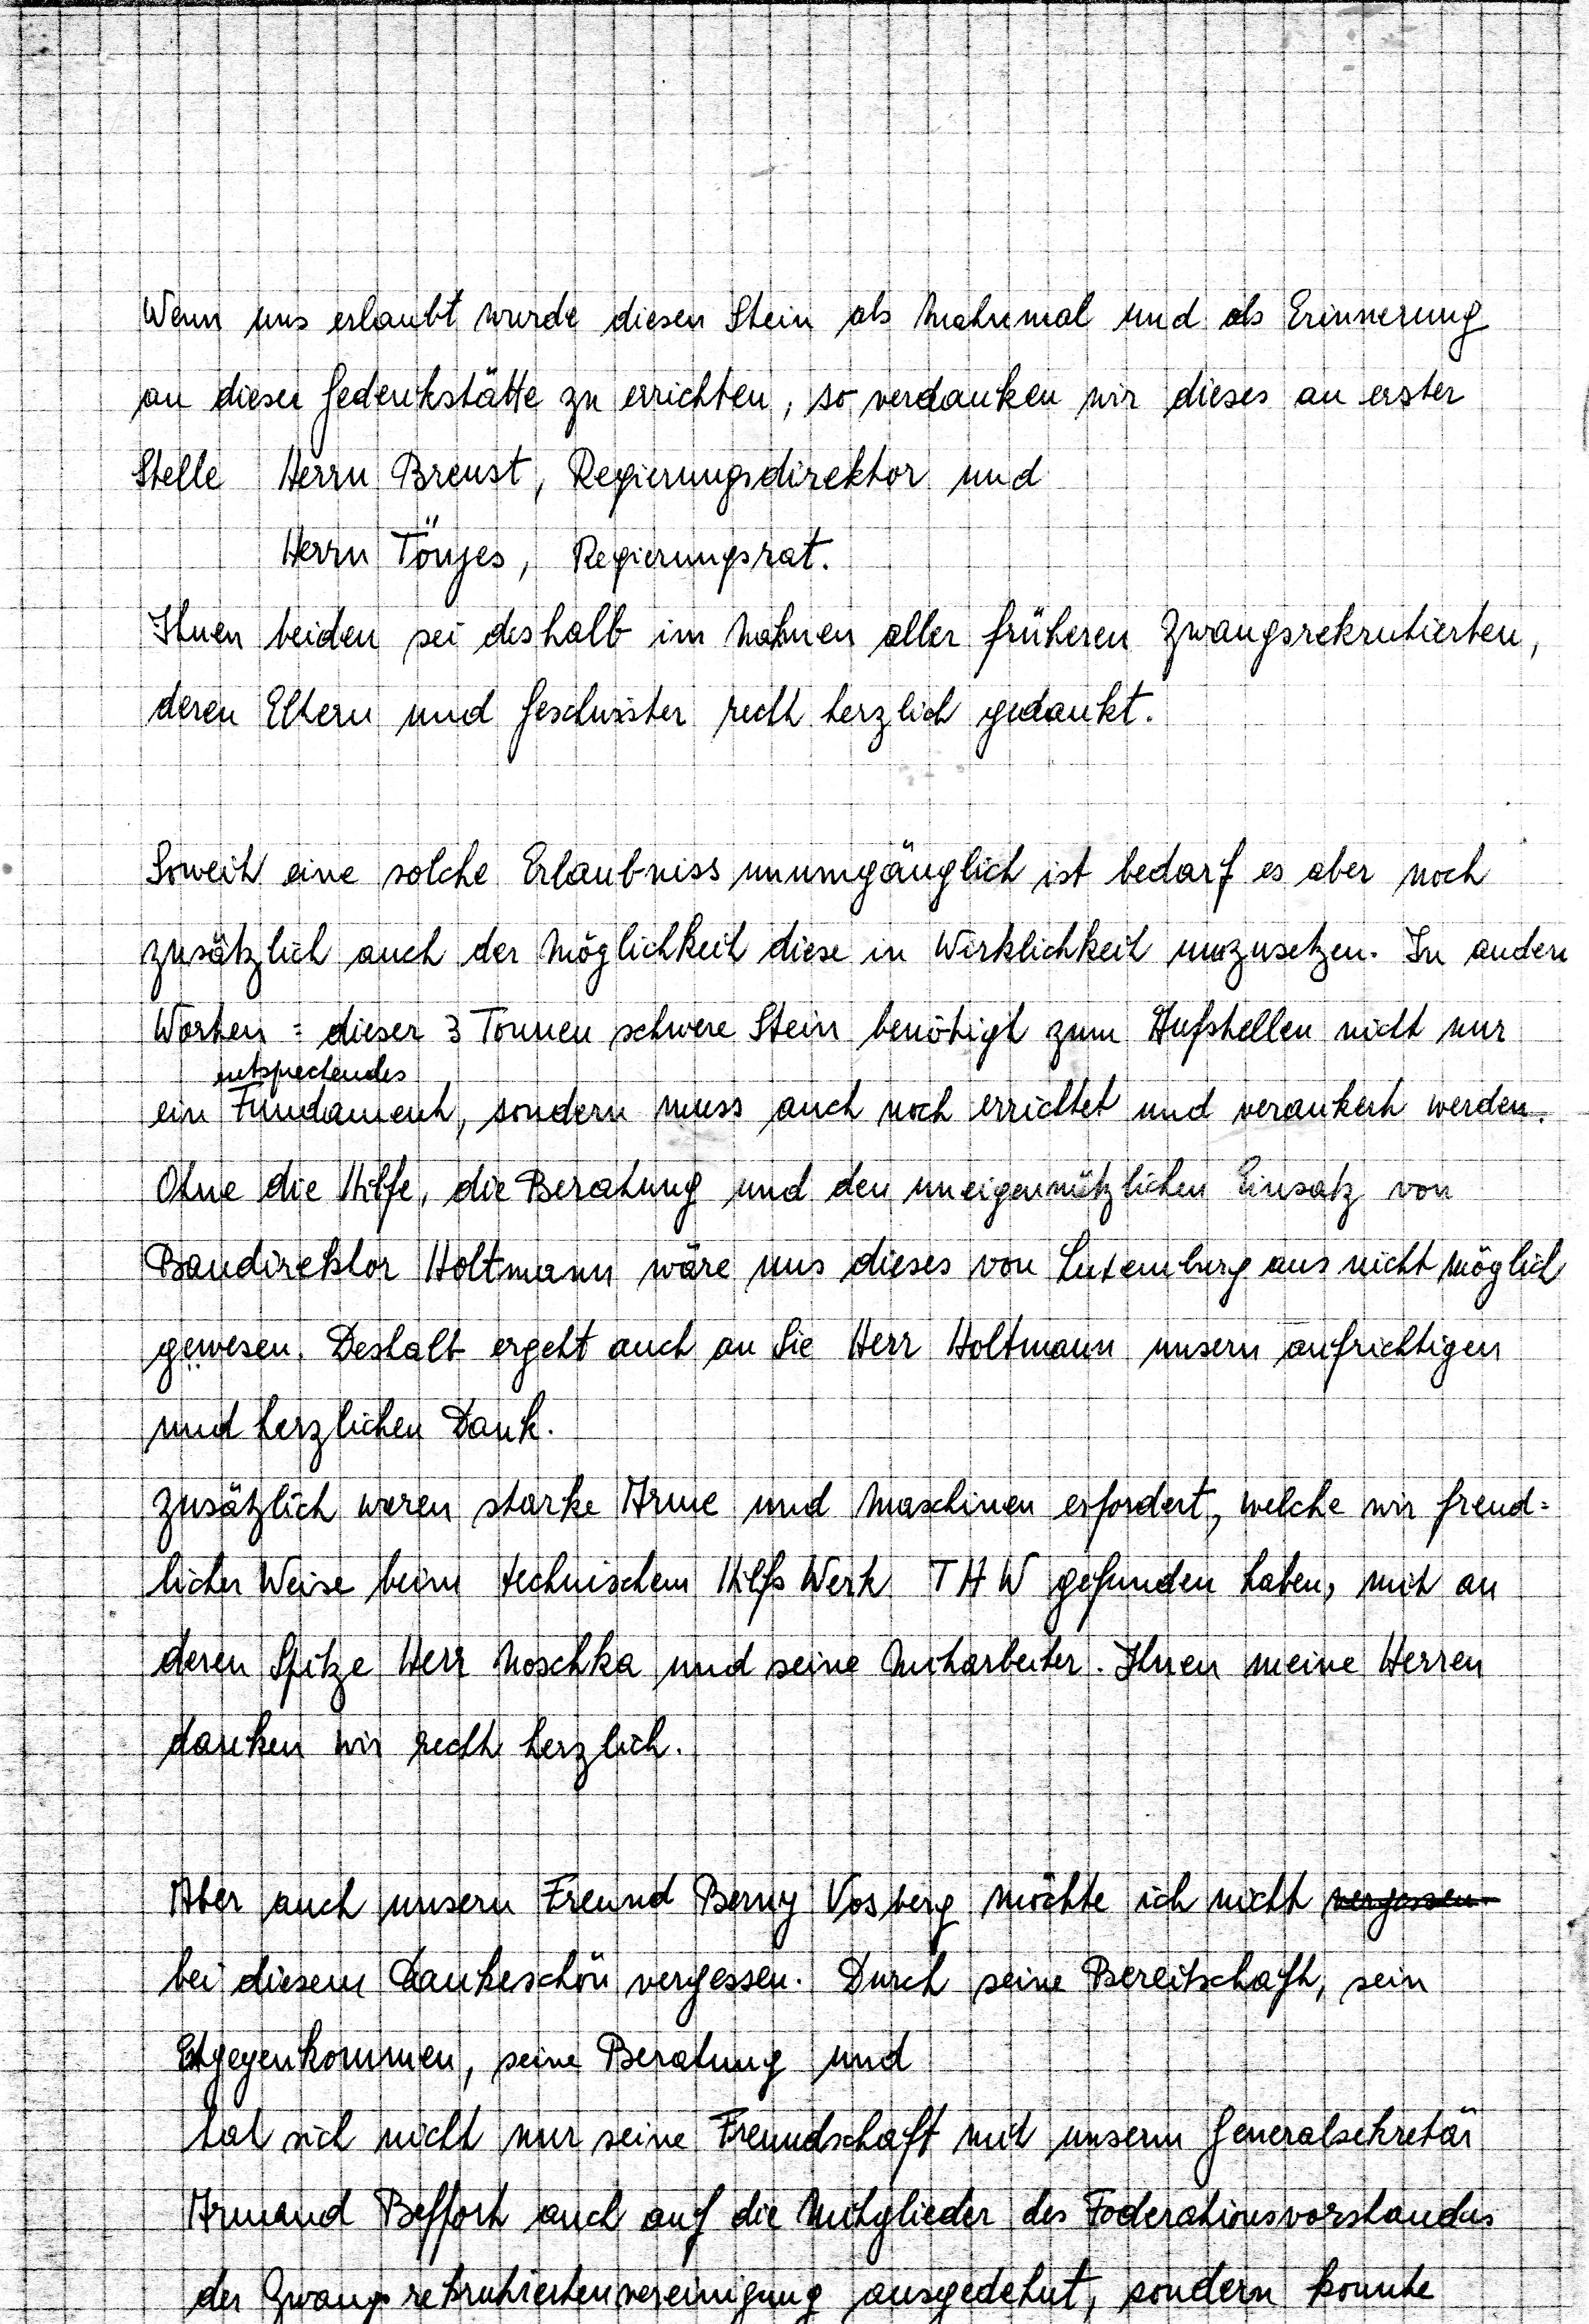 Wenn uns erlaubt wurde diesen Stein als Mahnmal und als Erinnerung
an dieser Gedenkstätte zu errichten, so verdanken wir dieses an erster
Stelle Herrn Breust, Regierungsdirektor und
Herrn Tönjes, Regierungsrat.
Ihnen beiden sei deshalb im Nahmen aller früheren Zwangsrekrutierten,
deren Eltern und Geschwister recht herzlich gedankt.
Soweit eine solche Erlaubniss unumgänglich ist bedarf es aber noch
zusätzlich auch der Möglichkeit diese in Wirklichkeit umzusetzen. In andern
Worten : dieser 3 Tonnen schwere Stein benötigt zum Aufstellen nicht nur
entsprechendes
ein Fundament, sondern muss auch noch errichtet und verankert werden.
Ohne die Hilfe, die Beratung und den uneigennützlichen Einsatz von
Baudirektor Holtmann wäre uns dieses von Luxemburg aus nicht möglich
gewesen. Deshalb ergeht auch an Sie Herr Holtmann unsern aufrichtigen
und herzlichen Dank.
Zusätzlich waren starke Arme und Maschinen erfordert, welche wir freud=
licher Weise beim technischem Hilfs Werk THW gefunden haben, mit an
deren Spitze Herr Noschka und seine Mitarbeiter. Ihnen meine Herren
danken wir recht herzlich.
Aber auch unsern Freund Berny Vosberg möchte ich nicht vergessen
bei diesem Dankeschön vergessen. Durch seine Bereitschaft, sein
Etgegenkommen, seine Beratung und
hat sich nicht nur seine Freundschaft mit unserm Generalsekretär
Armand Beffort auch auf die Mitglieder des Föderationsvorstandes
der Zwangsrekrutiertenvereinigung ausgedehnt, sondern konnte